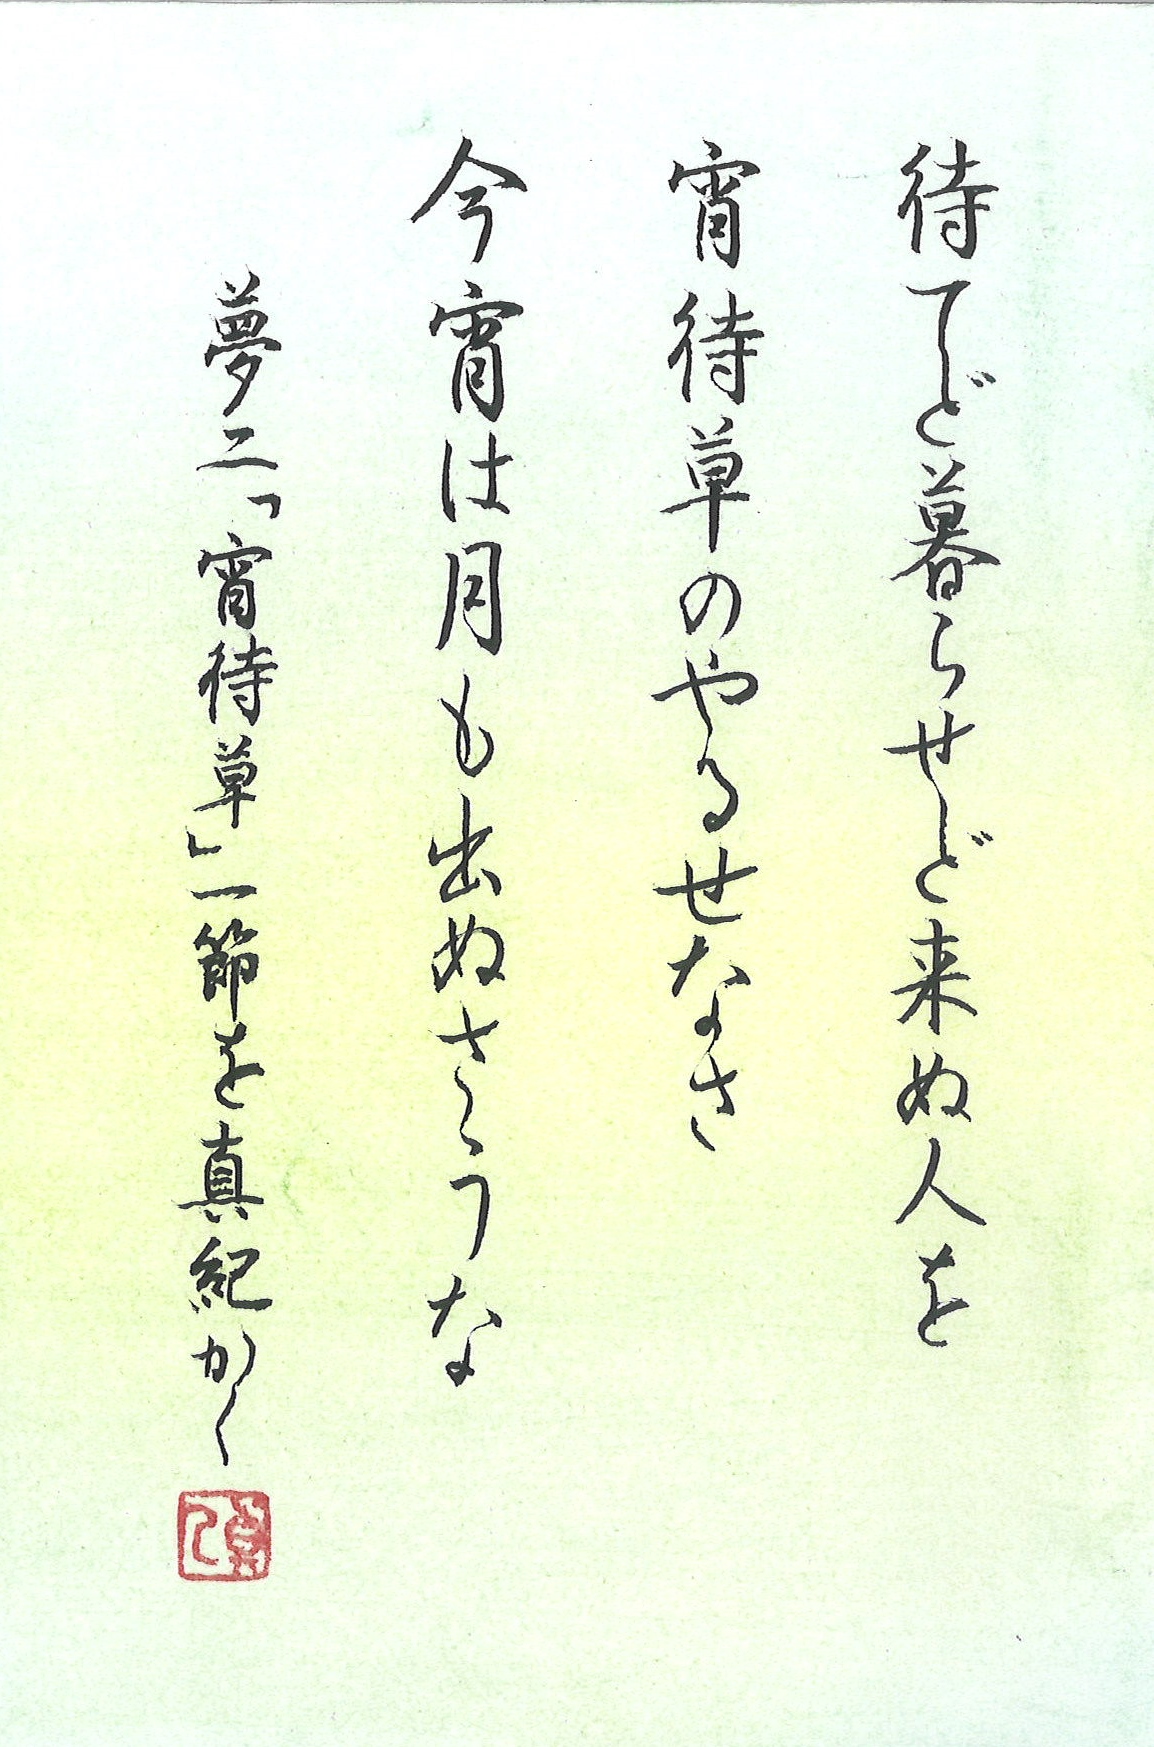 待てど暮らせど来ぬ人を
宵待草のやるせなさ
今宵は月も出ぬさうな
夢二「宵待草」一節を真紀かく